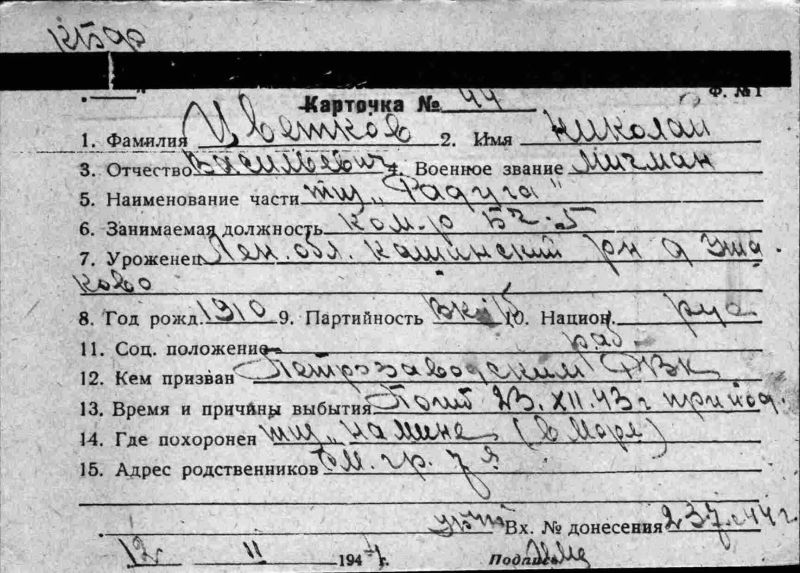 КБФ
Ф. №1
Карточка № 44
1. Фамилия Цветков 2. Имя Николай
3. Отчество Васильевич 4. Военное звание Мичман
5. Наименование части тщ „Радуга"
6. Занимаемая должность ком-р БЧ-5
7. Уроженец Лен. обл. Кашинский рн д Уша
ково
8. Год рожд. 1910 9. Партийность ВКПб 10. Национ. рус
11. Соц. положение раб
12. Кем призван Петрозаводским РВК
13. Время и причины выбытия Погиб 23.XII.43г при под.
14. Где похоронен тщ на мине (в море)
15. Адрес родственников
Вх. № донесения 237с 44г.
12 11 1944г. Подпись